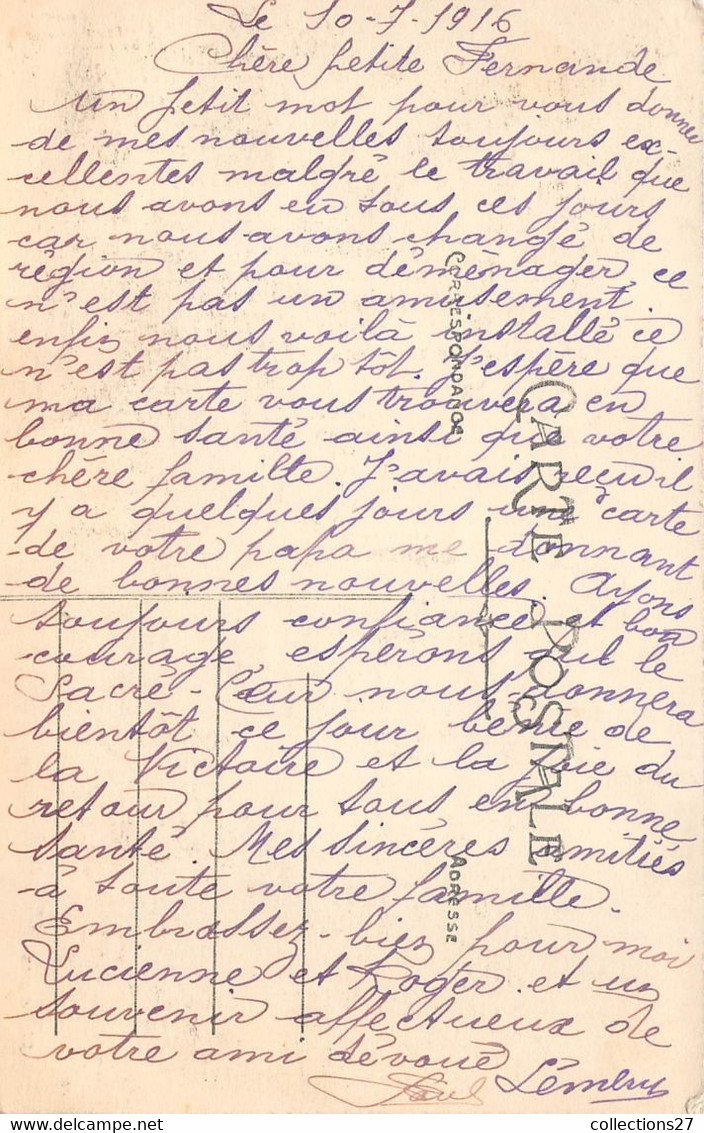 Le 10-7-1916
Chère petite Fernande
un petit mot pour vous donner
de mes nouvelles toujours ex-
cellentes malgré le travail que
nous avons en tous ces jours
car nous avons changé de
région et pour déménager, ce
n'est pas un amusement
enfin nous voilà installé ce
n'est pas trop tôt. J'espère que
ma carte vous trouvera en
bonne santé ainsi que votre
chère famille. J'avais reçu il
y a quelques jours une carte
de votre papa me donnant
de bonnes nouvelles. Ayons
toujours confiance et bon
courage, espérons que le
Sacré-Cœur nous donnera
bientôt ce jour bénie de
la Victoire et la joie du
retour pour tous en bonne
santé. Mes sincères amitiés
à toute votre famille.
Embrassez-bien pour moi
Lucienne et Roger et un
souvenir affectueux de
votre ami dévoué
Paul Lémery
CARTE POSTALE
CORRESPONDANCE
ADRESSE
collections27